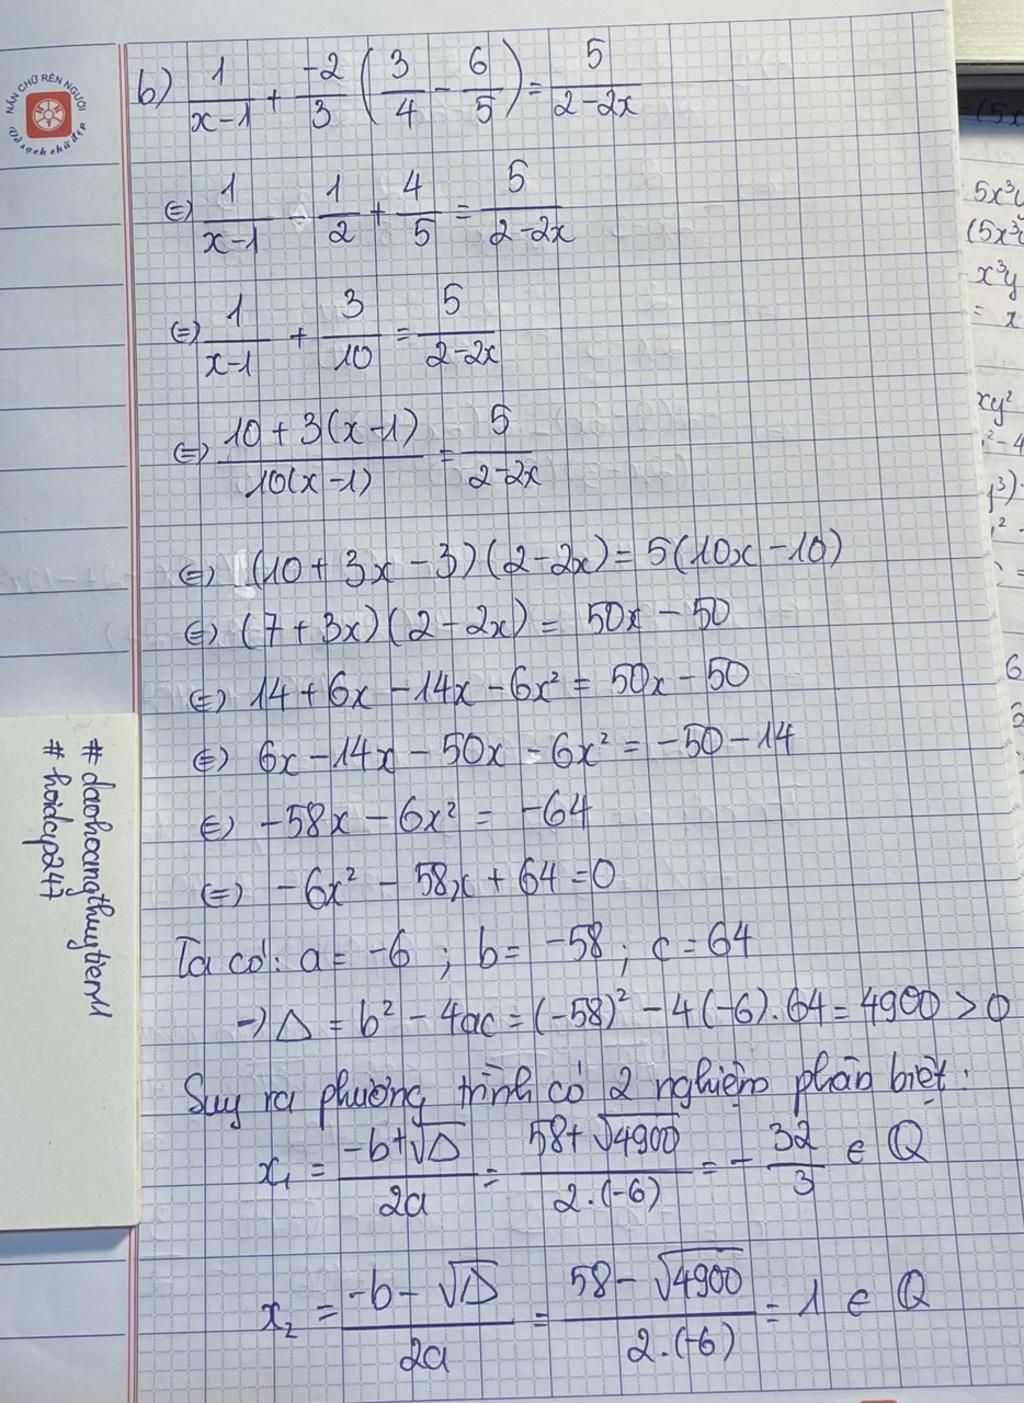 NẮN CHỮ RÈN NGƯỜI
b) 1/(x-1) + -2/3 (3/4 - 6/5) = 5/(2-2x)
(=) 1/(x-1) - 1/2 + 4/5 = 5/(2-2x)
(=) 1/(x-1) + 3/10 = 5/(2-2x)
(=) (10+3(x-1))/(10(x-1)) = 5/(2-2x)
(=) (10+3x-3)(2-2x) = 5(10x-10)
(=) (7+3x)(2-2x) = 50x-50
(=) 14+6x-14x-6x² = 50x-50
(=) 6x-14x-50x-6x² = -50-14
(=) -58x-6x² = -64
(=) -6x²-58x+64=0
Ta có: a= -6 ; b= -58 ; c=64
→ Δ = b² - 4ac = (-58)² - 4(-6).64 = 4900 > 0
Suy ra phương trình có 2 nghiệm phân biệt:
x₁ = (-b+√Δ)/2a = (58+√4900)/(2.(-6)) = -32/3 ∈ Q
x₂ = (-b-√Δ)/2a = (58-√4900)/(2.(-6)) = 1 ∈ Q
5x³y
x³y
= x
xy²